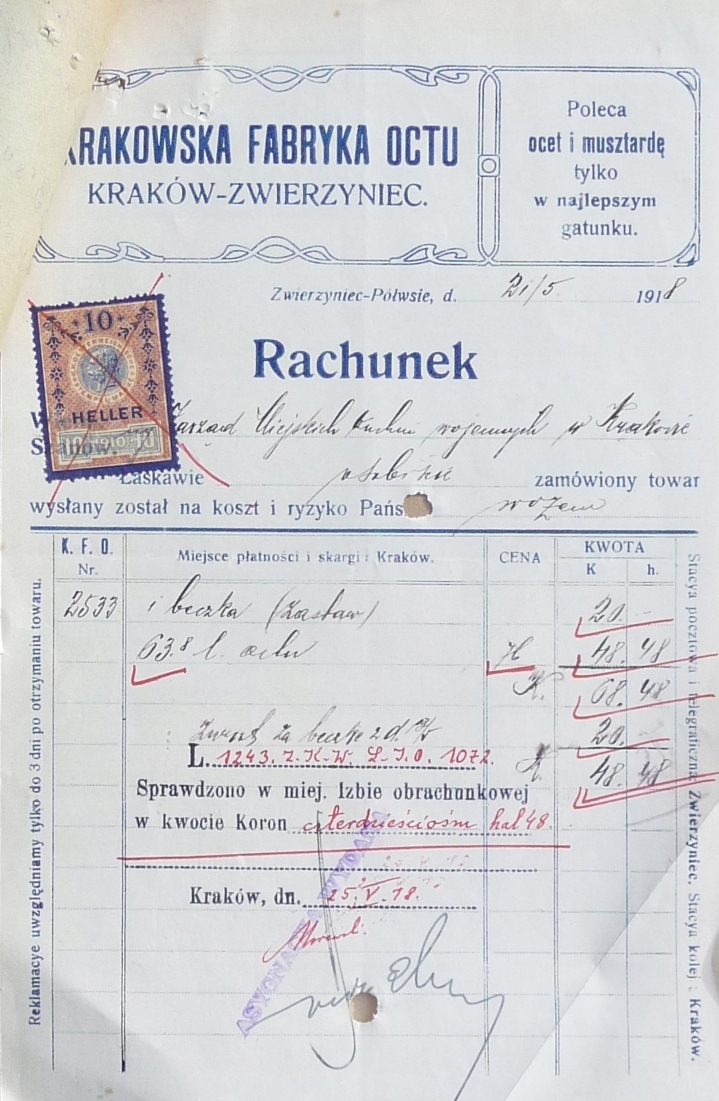 KRAKOWSKA FABRYKA OCTU
KRAKÓW-ZWIERZYNIEC.
Poleca
ocet i musztardę
tylko
w najlepszym
gatunku.
Zwierzyniec-Półwsie, d. 21/5 1918
10
HELLER
1910
Rachunek
Zarząd Miejskich Kuchni wojennych w Krakowie
Łaskawie osobiście zamówiony towar
wysłany został na koszt i ryzyko Pańs wozem
K. F. O.
Nr.
Miejsce płatności i skargi: Kraków.
CENA
KWOTA
K h.
2533 1 beczka (zastaw) 20.-
63.8 l. octu 76 48.48
K. 68.48
Zwrot za beczkę z d. 20.-
K 48.48
L. 1243. Z.K.W. L.I.O. 1072.
Sprawdzono w miej. Izbie obrachunkowej
w kwocie Koron czterdzieściośm hal 48.
Kraków, dn. 25.V.18.
ASYGNATA WYDANA
Reklamacye uwzględniamy tylko do 3 dni po otrzymaniu towaru.
Stacya pocztowa i telegraficzna: Zwierzyniec. Stacya kolej.: Kraków.